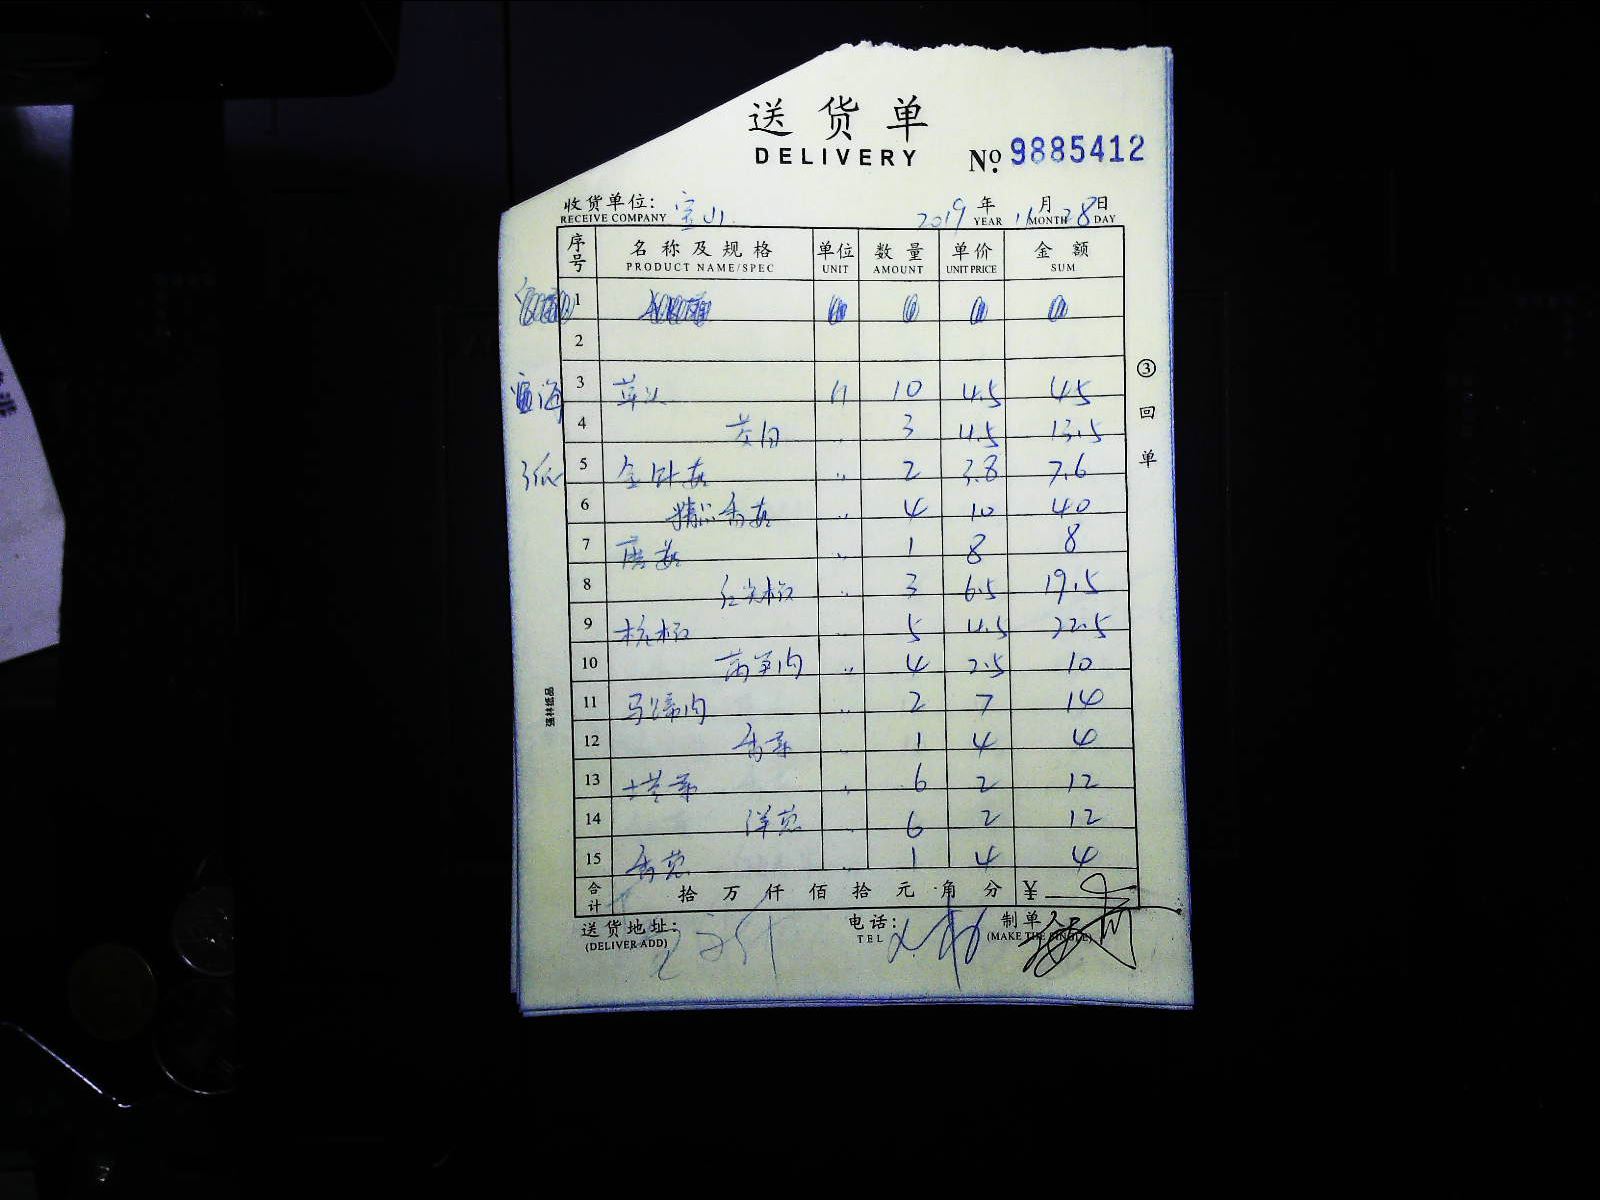 送货单
DELIVERY
№ 9885412
收货单位: 宝山 2019 年 11 月 28 日
RECEIVE COMPANY YEAR MONTH DAY
序号 名称及规格 单位 数量 单价 金额
PRODUCT NAME/SPEC UNIT AMOUNT UNIT PRICE SUM
1
2
3 10 4.5 45
4 茭白 3 4.5 13.5
5 金针菇 2 3.8 7.6
6 精品香菇 4 10 40
7 蘑菇 1 8 8
8 红尖椒 3 6.5 19.5
9 杭椒 5 4.5 22.5
10 莴笋肉 4 2.5 10
11 马蹄肉 2 7 14
12 香菜 1 4 4
13 塔菜 6 2 12
14 洋葱 6 2 12
15 香葱 1 4 4
合计 拾 万 仟 佰 拾 元 角 分 ¥
送货地址: 电话: 制单人
(DELIVER ADD) TEL (MAKE THE SINGLE)
③回单
强林纸品